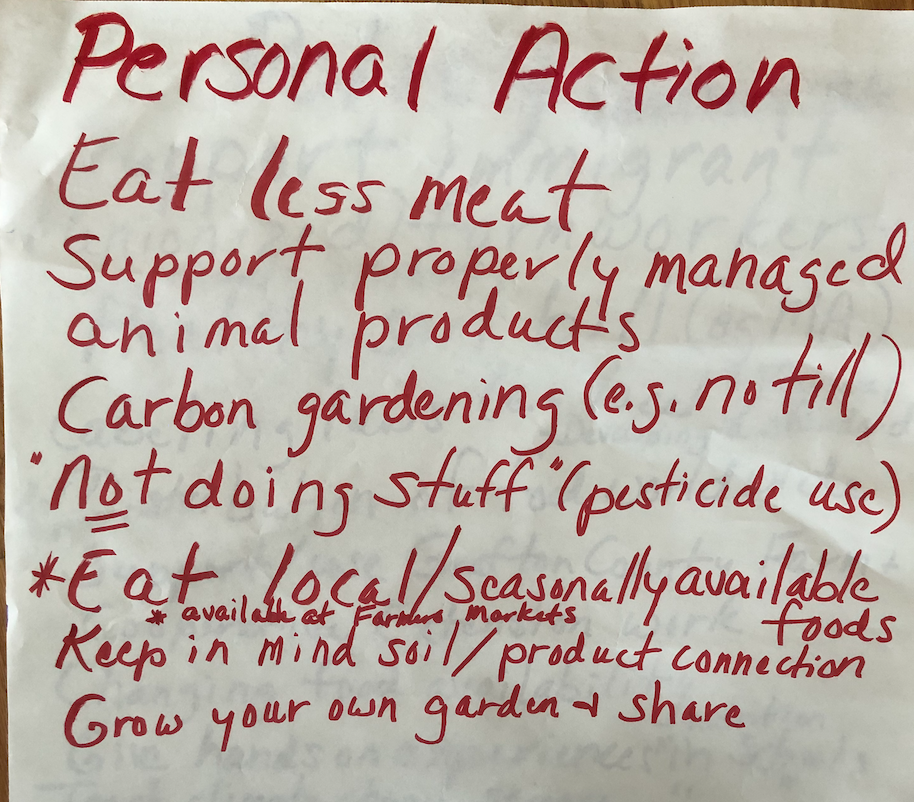 Personal Action
Eat less meat
Support properly managed
animal products
Carbon gardening (e.g. no till)
"Not doing stuff" (pesticide use)
*Eat local/seasonally available
foods
* available at Farmers Markets
Keep in mind soil/product connection
Grow your own garden + share